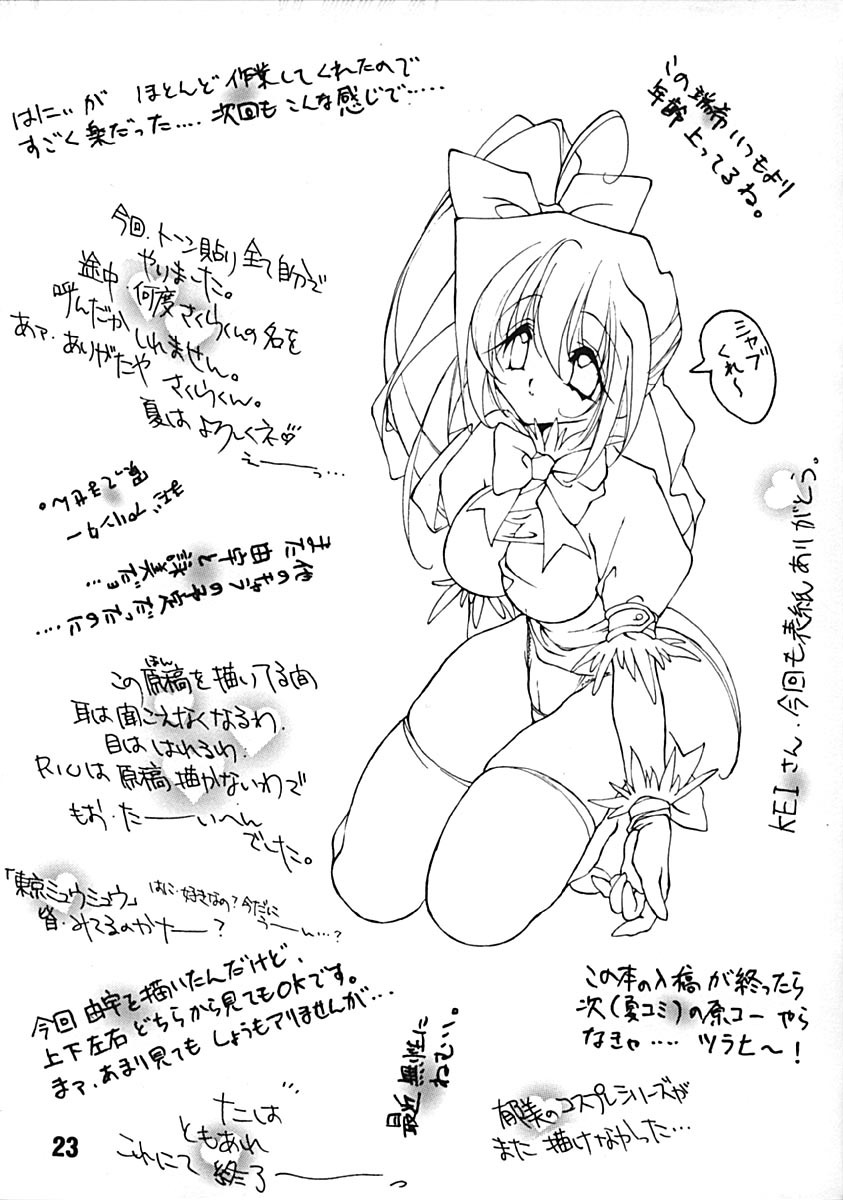 はにぃが ほとんど 作業してくれたので
すごく楽だった‥‥次回もこんな感じで‥‥‥
この 瑞希いつもより
年齢 上ってるね。
今回、トーン貼り全て自分で
やりました。
途中、何度さくらくんの名を
呼んだか しれません。
あァ、ありがたや さくらくん。
夏は よろしくネ♡
えーーっ…
ミャブ
くれ〜
KEIさん、今回も表紙ありがとう。
また由宇と詠美だョ…
この原稿を描いてる間
ほん
耳は聞こえなくなるわ、
目は はれるわ、
RIUは 原稿描かないわで
もお、たーーいへん
でした。
「東京ミュウミュウ」
皆、みてるのかなー?
はに、好きなの?今だに
うーん…?
今回 由宇を描いたんだけど、
上下左右 どちらから見てもOKです。
まァ、あまり見ても しょうもアリませんが…
この本の入稿が終ったら
次(夏コミ)の原コーやら
なきゃ‥‥ ツラヒ〜!
最近 無性に
ねむい。
郁美のコスプレシリーズが
また 描けなかった…
ともあれ
これにて 終了ーーっ
23